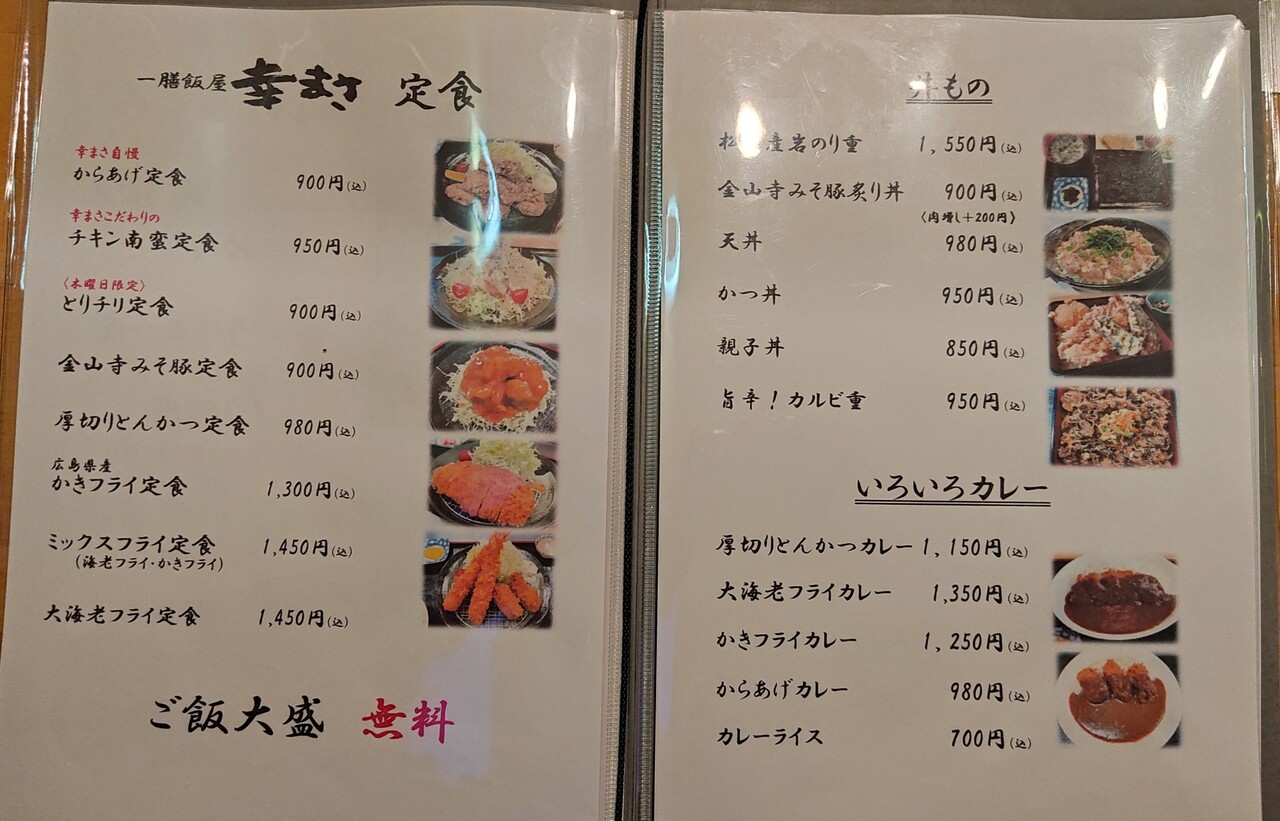 一膳飯屋 幸まさ 定食
幸まさ自慢
からあげ定食 900円(込)
幸まさこだわりの
チキン南蛮定食 950円(込)
〈木曜日限定〉
とりチリ定食 900円(込)
金山寺みそ豚定食 900円(込)
厚切りとんかつ定食 980円(込)
広島県産
かきフライ定食 1,300円(込)
ミックスフライ定食 1,450円(込)
(海老フライ・かきフライ)
大海老フライ定食 1,450円(込)
ご飯大盛 無料
丼もの
松 産岩のり重 1,550円(込)
金山寺みそ豚炙り丼 900円(込)
〈肉増し+200円〉
天丼 980円(込)
かつ丼 950円(込)
親子丼 850円(込)
旨辛!カルビ重 950円(込)
いろいろカレー
厚切りとんかつカレー 1,150円(込)
大海老フライカレー 1,350円(込)
かきフライカレー 1,250円(込)
からあげカレー 980円(込)
カレーライス 700円(込)